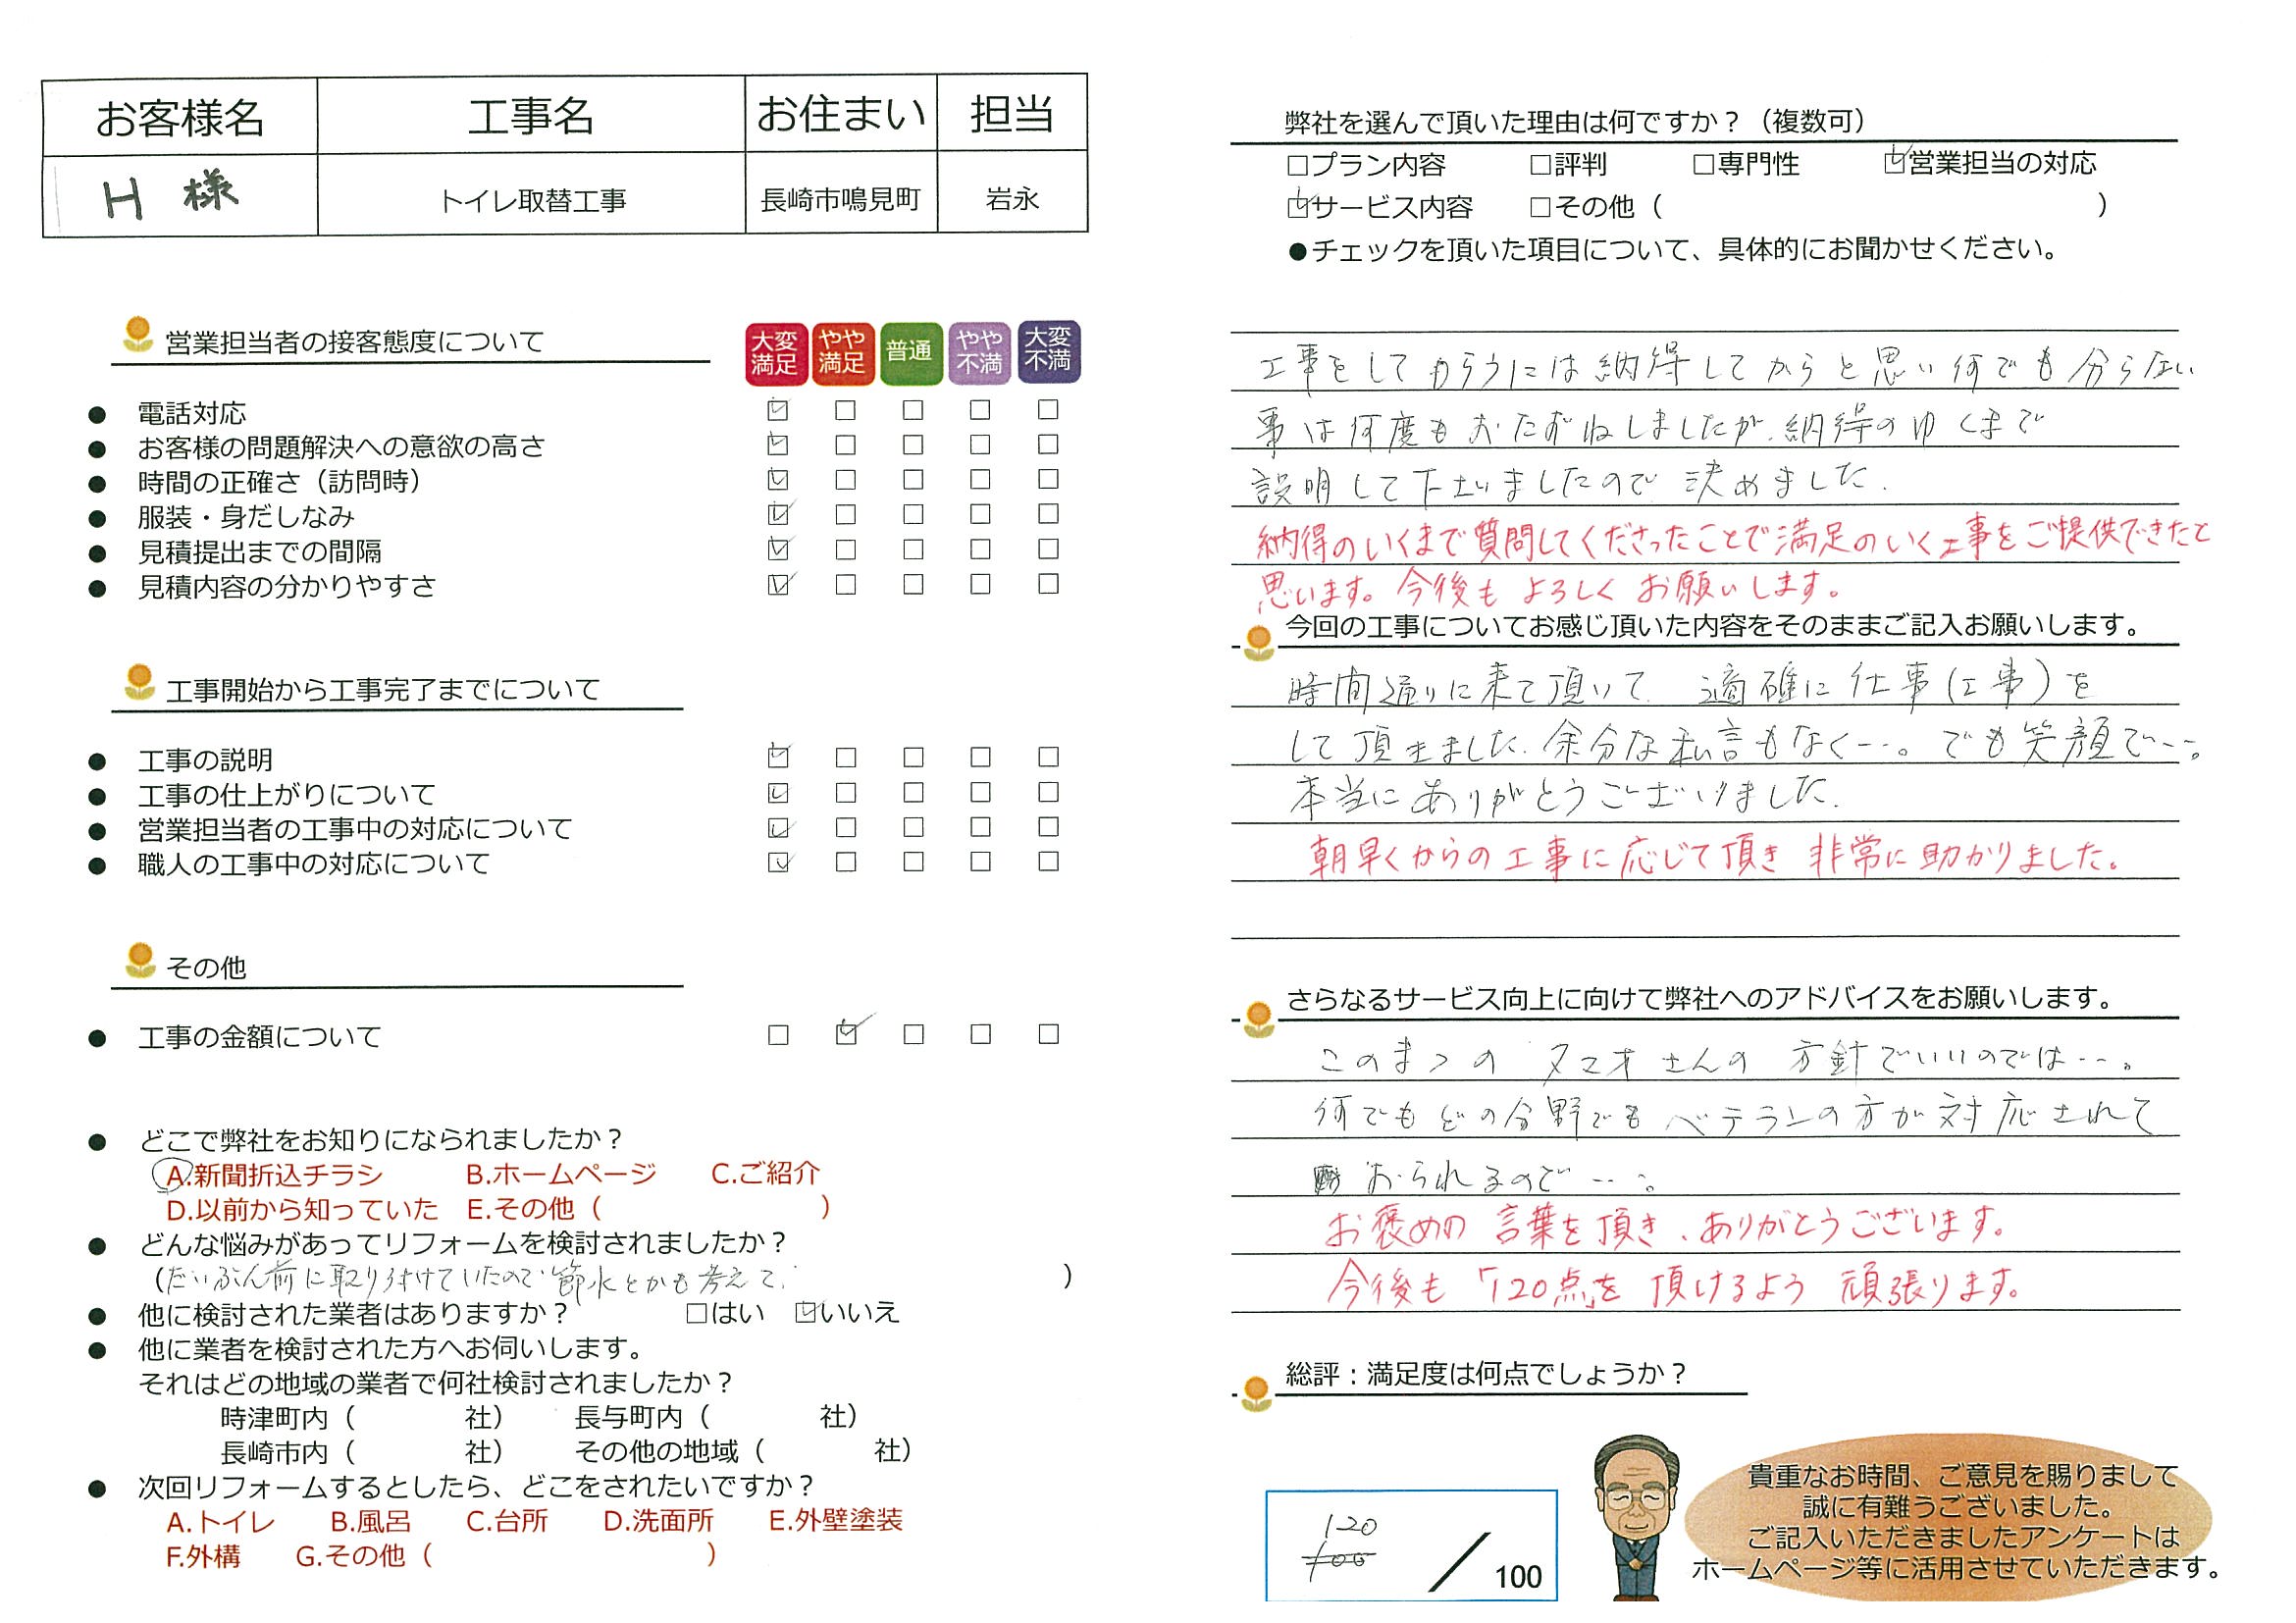 お客様名 工事名 お住まい 担当
H 様 トイレ取替工事 長崎市鳴見町 岩永
営業担当者の接客態度について
大変満足 やや満足 普通 やや不満 大変不満
● 電話対応 ☑ □ □ □ □
● お客様の問題解決への意欲の高さ ☑ □ □ □ □
● 時間の正確さ（訪問時） ☑ □ □ □ □
● 服装・身だしなみ ☑ □ □ □ □
● 見積提出までの間隔 ☑ □ □ □ □
● 見積内容の分かりやすさ ☑ □ □ □ □
工事開始から工事完了までについて
● 工事の説明 ☑ □ □ □ □
● 工事の仕上がりについて ☑ □ □ □ □
● 営業担当者の工事中の対応について ☑ □ □ □ □
● 職人の工事中の対応について ☑ □ □ □ □
その他
● 工事の金額について □ ☑ □ □ □
● どこで弊社をお知りになられましたか？
A.新聞折込チラシ B.ホームページ C.ご紹介
D.以前から知っていた E.その他（ ）
● どんな悩みがあってリフォームを検討されましたか？
（だいぶん前に取り付けていたので節水とかも考えて. ）
● 他に検討された業者はありますか？ □はい ☑いいえ
● 他に業者を検討された方へお伺いします。
それはどの地域の業者で何社検討されましたか？
時津町内（ 社） 長与町内（ 社）
長崎市内（ 社） その他の地域（ 社）
● 次回リフォームするとしたら、どこをされたいですか？
A.トイレ B.風呂 C.台所 D.洗面所 E.外壁塗装
F.外構 G.その他（ ）
弊社を選んで頂いた理由は何ですか？（複数可）
□プラン内容 □評判 □専門性 ☑営業担当の対応
☑サービス内容 □その他（ ）
●チェックを頂いた項目について、具体的にお聞かせください。
工事をしてもらうには納得してからと思い何でも分らない
事は何度もおたずねしましたが、納得のゆくまで
説明して下さいましたので決めました.
納得のいくまで質問してくださったことで満足のいく工事をご提供できたと
思います。今後もよろしくお願いします。
今回の工事についてお感じ頂いた内容をそのままご記入お願いします。
時間通りに来て頂いて 適確に仕事(工事)を
して頂きました.余分な私言もなく…。でも笑顔で…。
本当にありがとうございました.
朝早くからの工事に応じて頂き 非常に助かりました。
さらなるサービス向上に向けて弊社へのアドバイスをお願いします。
このまゝの タマオさんの 方針でいいのでは…。
何でもどの分野でもベテランの方が対応されて
おられるので…。
お褒めの言葉を頂き、ありがとうございます。
今後も「120点」を頂けるよう 頑張ります。
総評：満足度は何点でしょうか？
120
100
／100
貴重なお時間、ご意見を賜りまして
誠に有難うございました。
ご記入いただきましたアンケートは
ホームページ等に活用させていただきます。